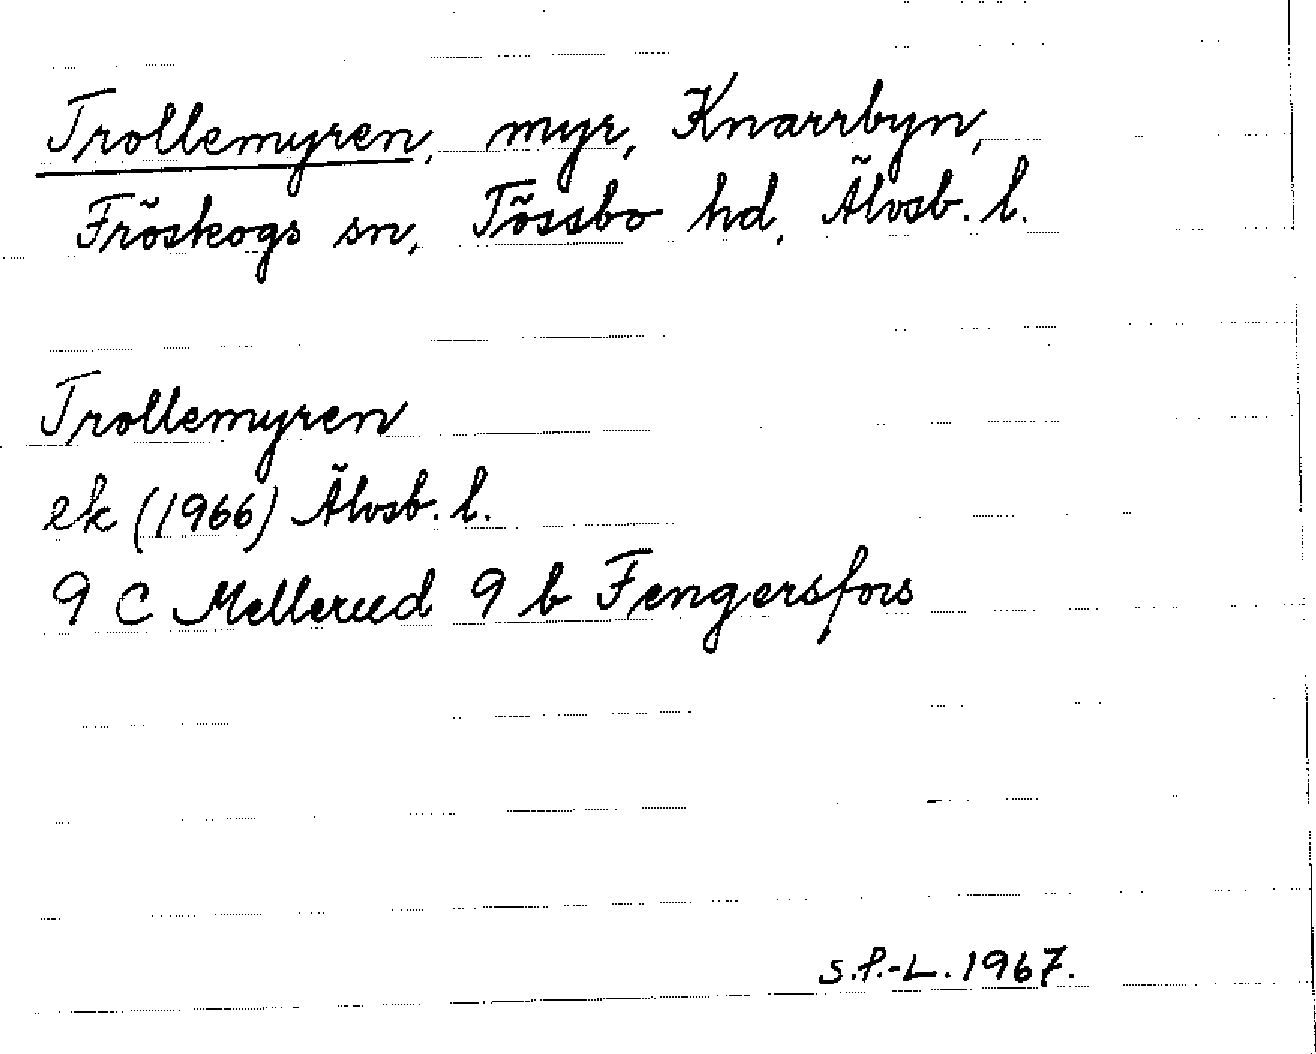 Trollemyren, myr, Knarrbyn,
Fröskogs sn, Tössbo hd, Älvsb. l.
Trollemyren
ek (1966) Älvsb. l.
9 C Mellerud 9 b Fengersfors
S.P.-L. 1967.